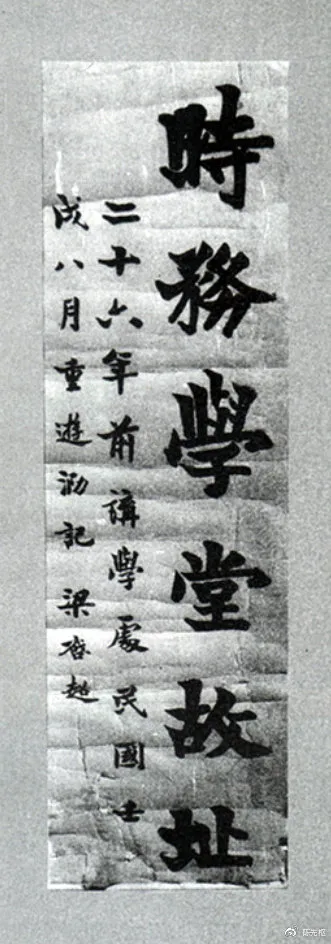 時務學堂故址
二十六年前講學處民國壬
戌八月重遊泐記梁啓超
@陈先枢